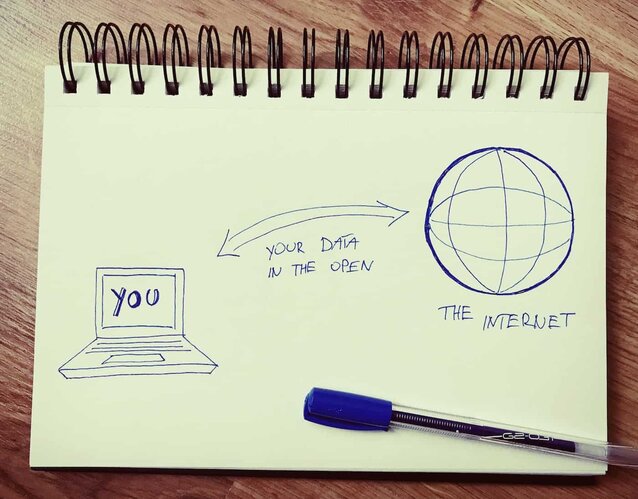 YOUR DATA
IN THE OPEN
YOU
THE INTERNET